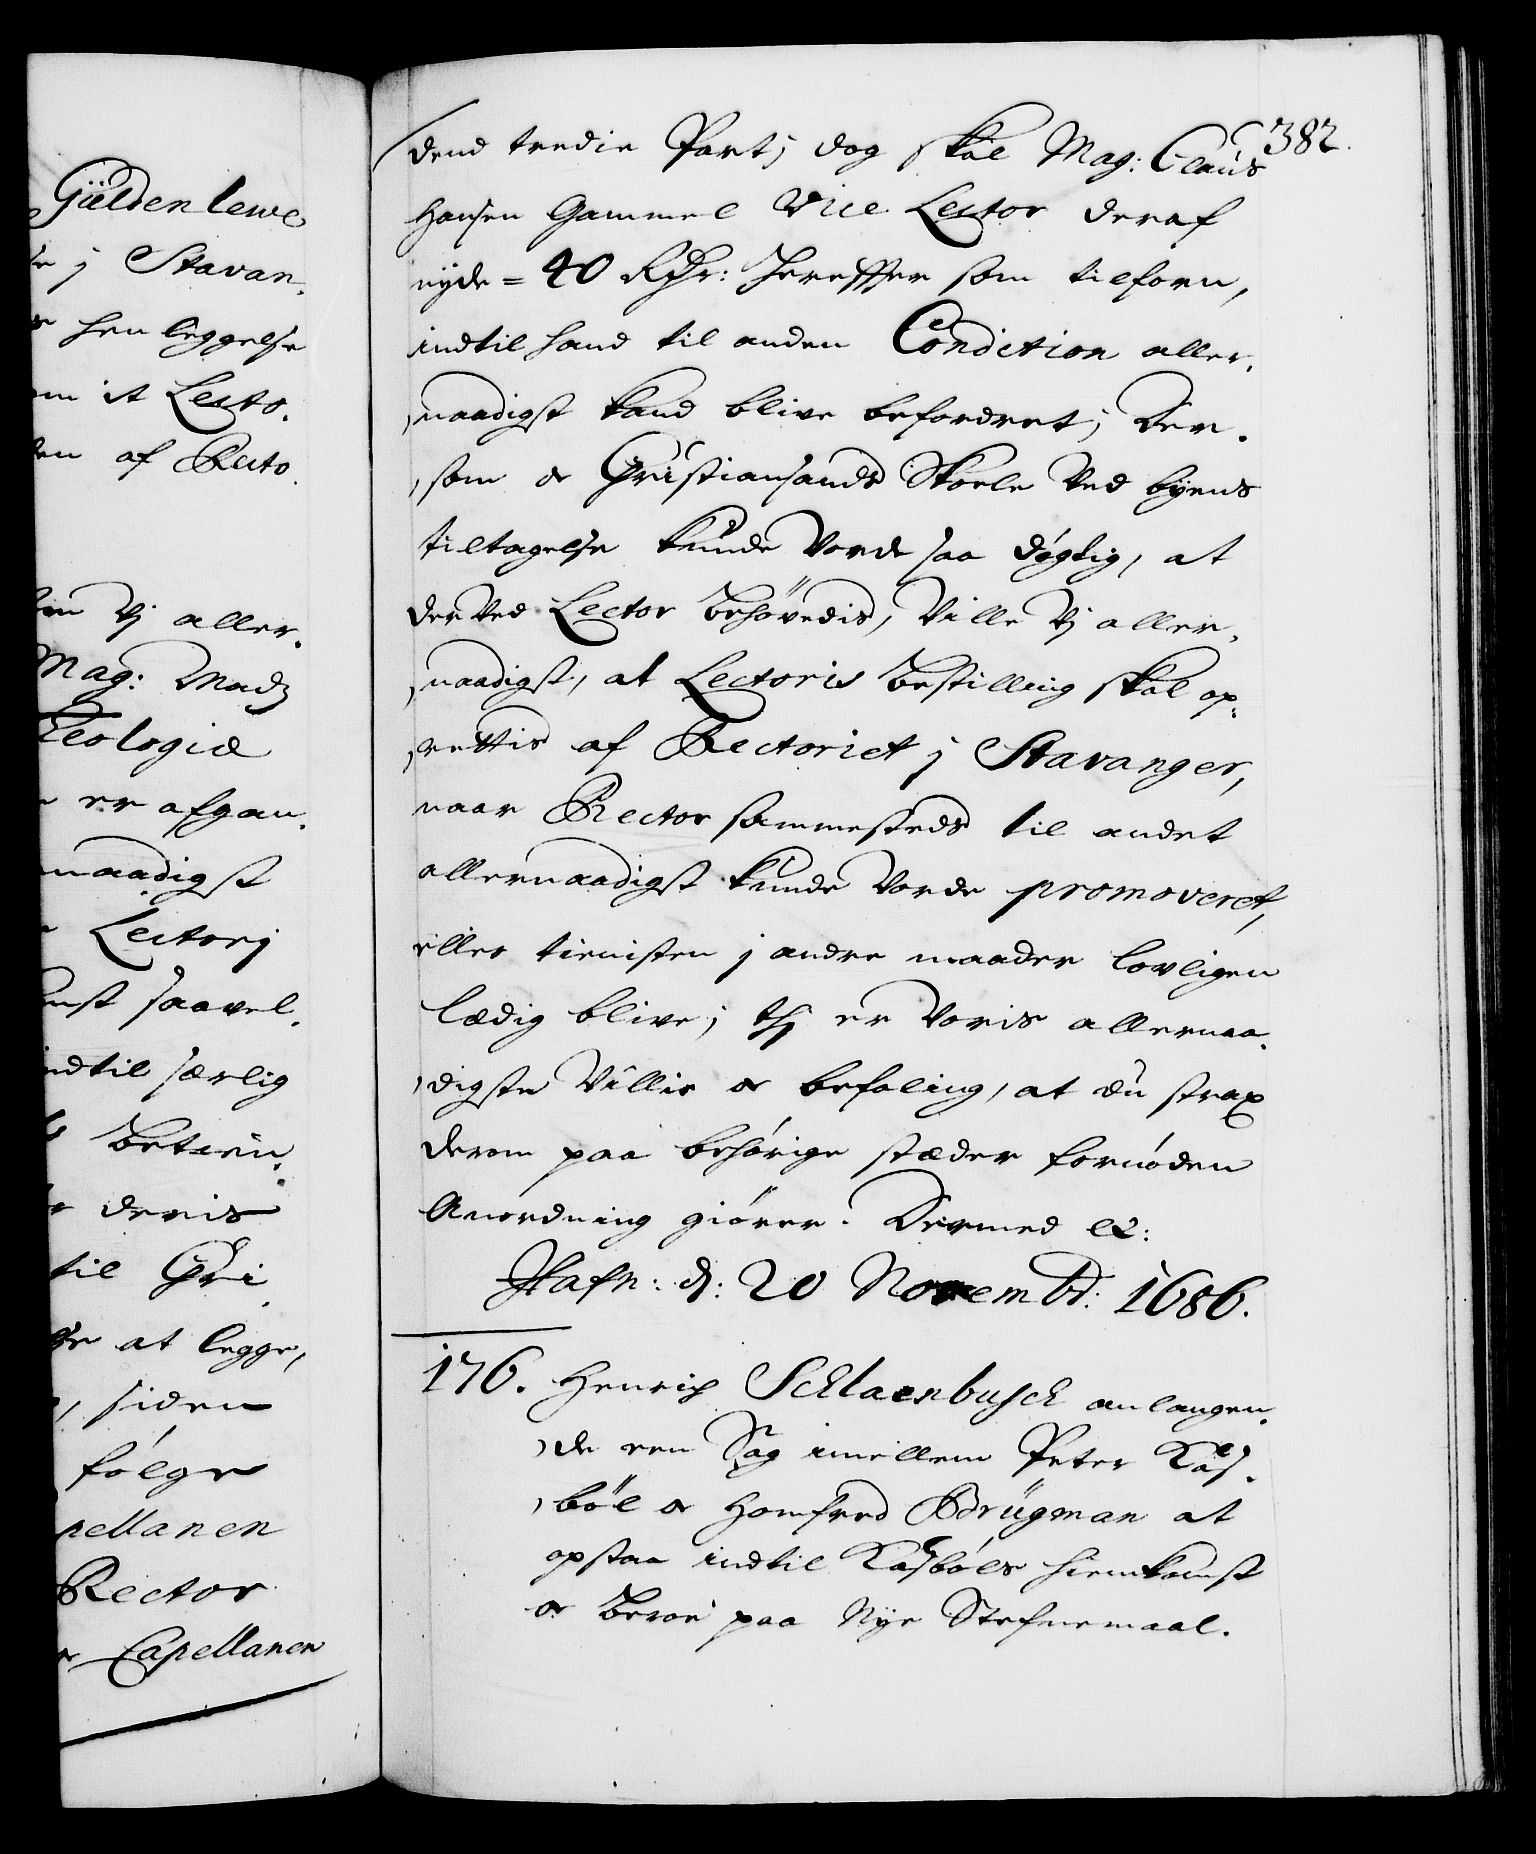 Güldenlewe
j Stavan¸
hen leggelse
it Lecto.
af Recto.
Vj aller¸
Mag: Madz
Teologiæ
er afgan¸
naadigst
Lectorj
saavel¸
indtil særlig
betien¸
deris
til Chri¸
at legge,
, siden
følge
pellanen
Rector
Capellanen
382.
dend tredie Part; dog skal Mag: Claus
Hansen Gammel Vice Lector deraf
nyde = 40 Rdr: hereffter som tilforn,
indtil hand til anden Condition aller¸
¸naadigst kand blive befordret; Der¸
¸som oc Christiansands Skoele Ved byens
tiltagelse kunde Vorde saa døgtig, at
der Ved Lector behøvedis, Ville Vj aller¸
¸naadigst, at Lectoris bestilling skal op¸
¸rettis af Rectoriet j Stavanger,
naar Rector sammesteds til andet
allernaadigst kunde Vorde promoveret,
eller tienisten j andre maader lovligen
lædig blive; thj er Voris allernaa¸
¸digste Villie oc befaling, at du strax
derom paa behørige stæder fornøden
Anordning giører. Dermed etc:
Hafn: d: 20 Novembr: 1686.
176. Henrich Schlaenbusch anlangen¸
¸de een Sag imellem Peter Kaas¸
¸bøl oc Homfred Brügman at
opstaa indtil Kaasbøls hiemkomst
oc beroe paa Nye Stefnemaal.